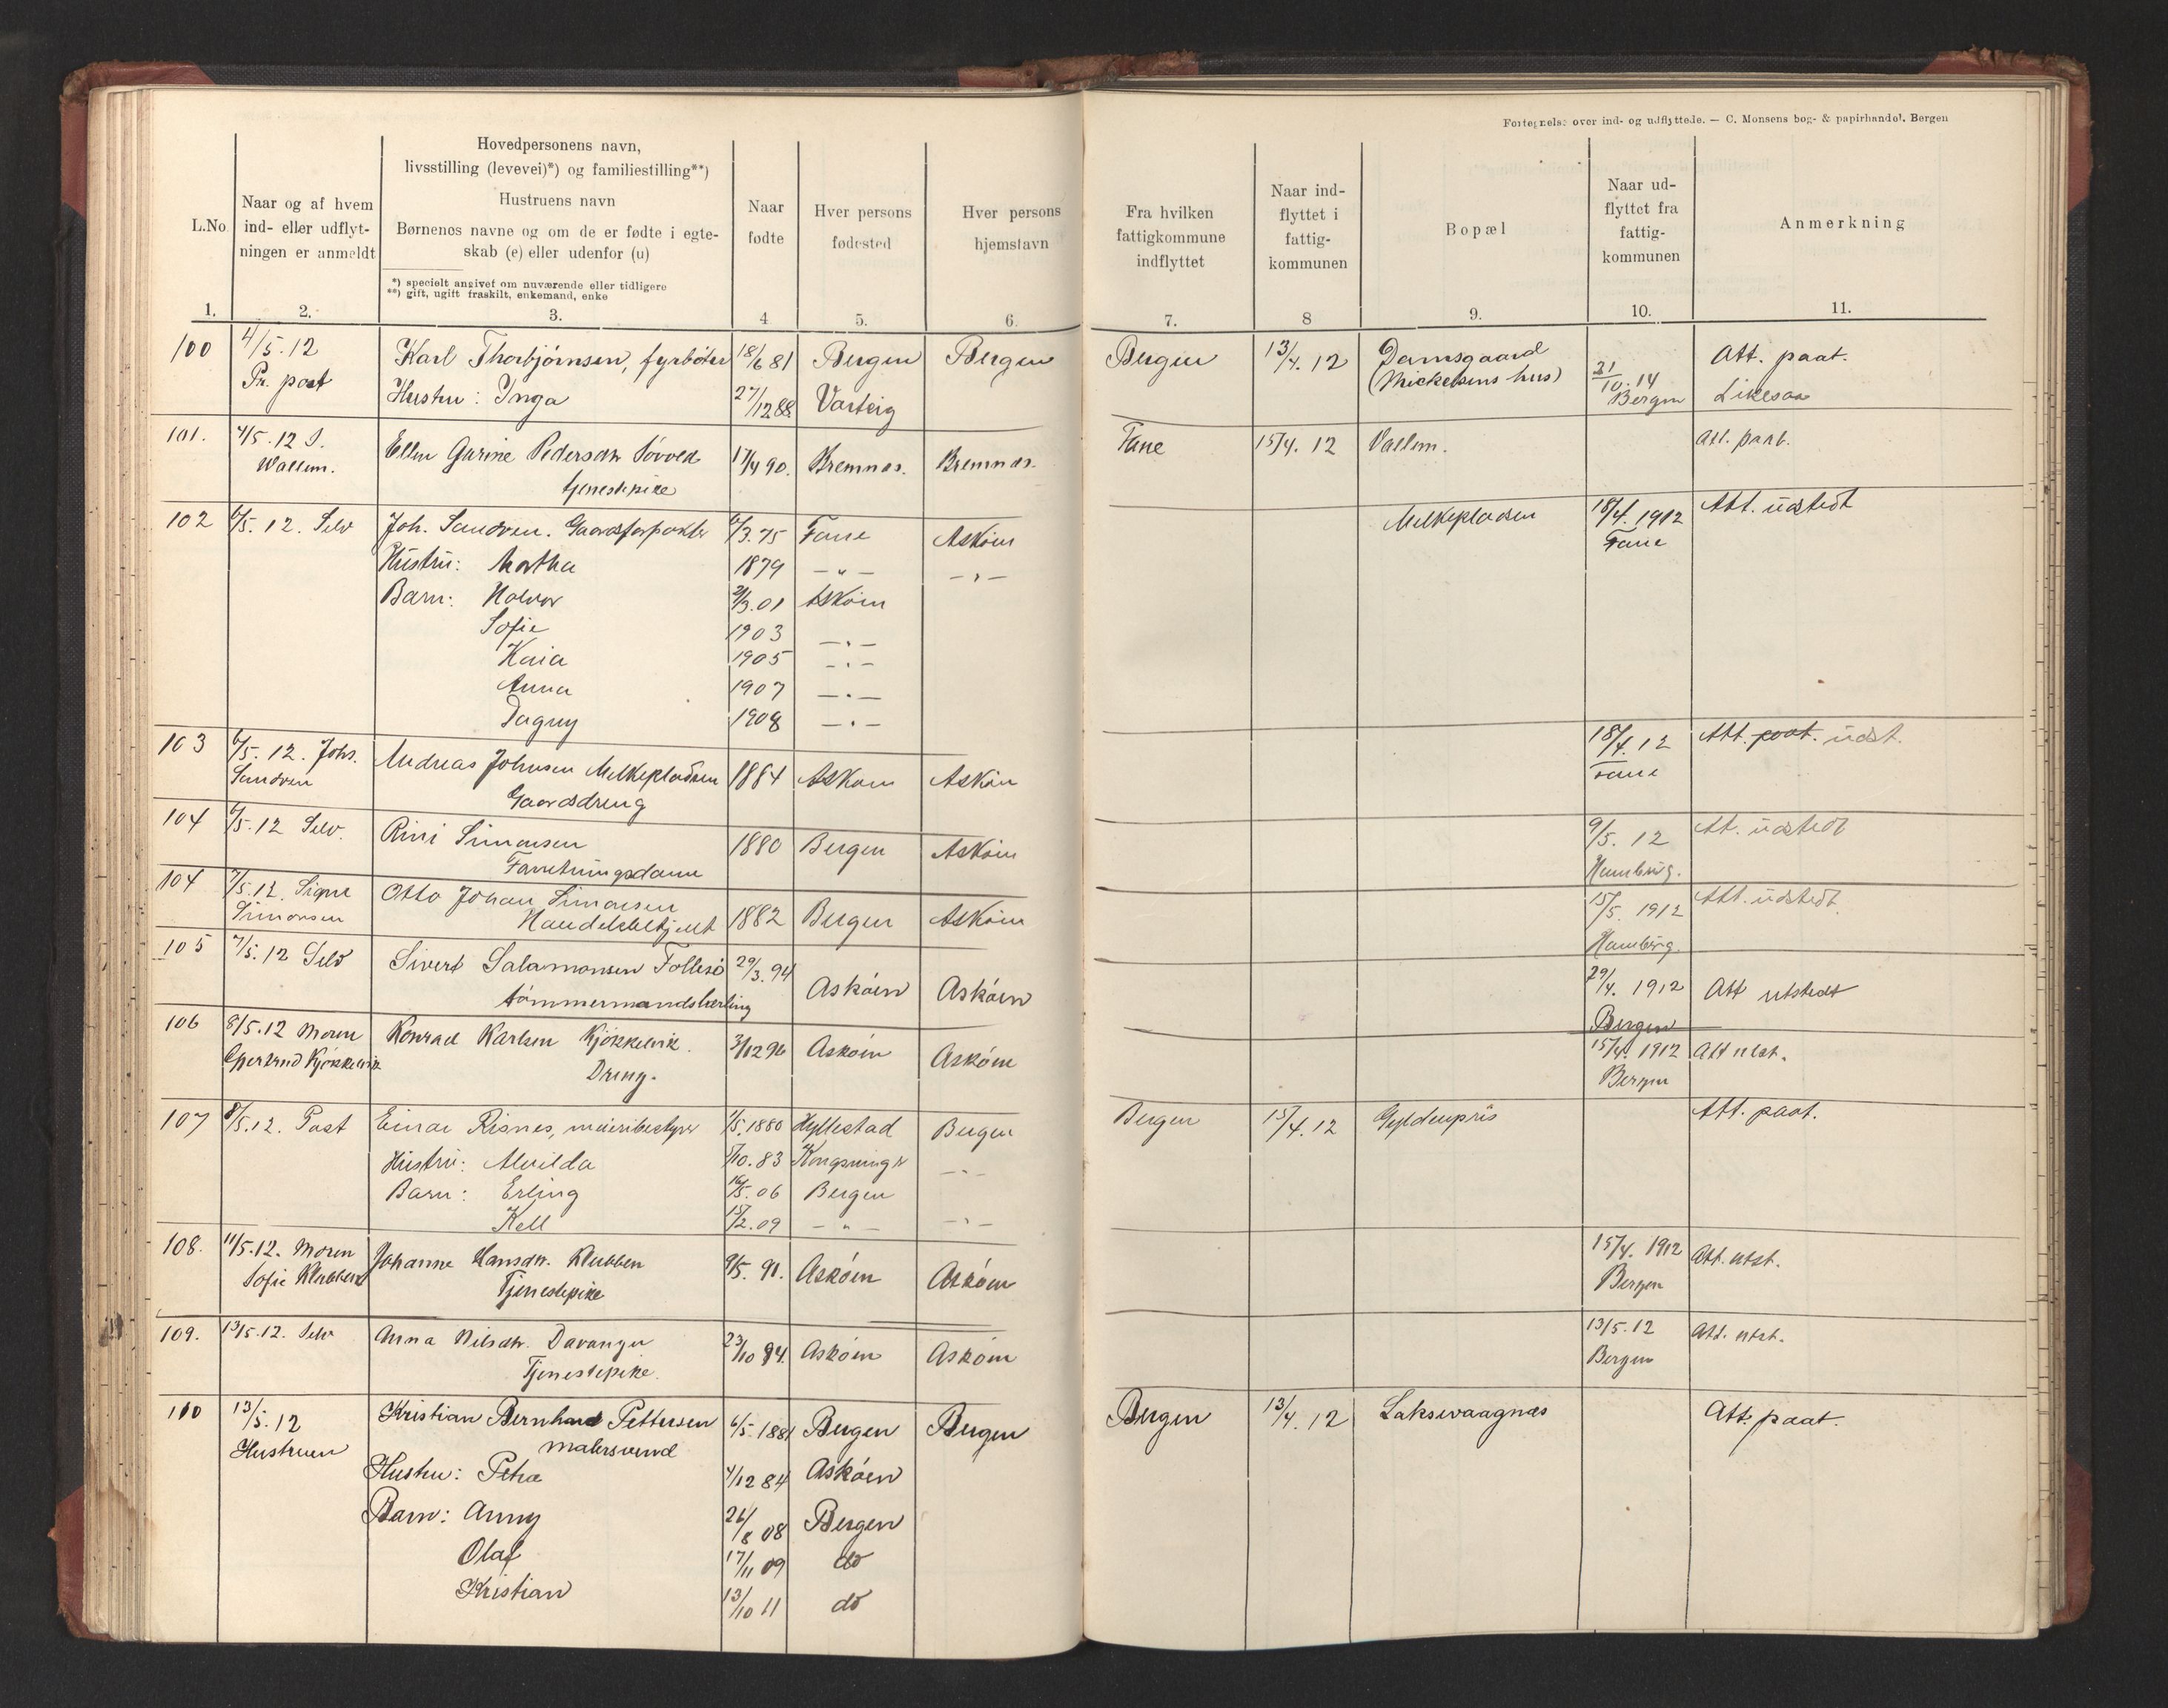 Fortegnelse over ind- og udflyttede. — C. Monsens bog- & papirhandel, Bergen
L.No
Naar og af hvem ind- eller udflyt- ningen er anmeldt
Hovedpersonens navn,
livsstilling (levevei)*) og familiestilling**)
Hustruens navn
Børnenes navne og om de er fødte i egte-
skab (e) eller udenfor (u)
*) specielt angivet om nuværende eller tidligere
**) gift, ugift fraskilt, enkemand, enke
Naar fødte
Hver persons fødested
Hver persons hjemstavn
Fra hvilken fattigkommune indflyttet
Naar ind- flyttet i fattig- kommunen
Bopæl
Naar ud- flyttet fra fattig- kommunen
Anmerkning
1. 2. 3. 4 5. 6. 7. 8 9. 10. 11.
100 4/5.12 Karl Thorbjørnsen, fyrbøter 18/6 81 Bergen Bergen Bergen 13/4.12 Damsgaard Att. paat.
Pr. post Hustru: Inga 27/12 88 Varteig (Mickelsens hus) 31/10.14 Bergen Likesaa
101. 4/5.12 J. Ellen Garine Pedersdtr 17/4 90. Bremnes. Bremnes. Fane 15/4.12 Vallem. Att. paat.
Wallem. tjenestepike
102 6/5.12. Selv Joh. Sandven. Gaardsforpakter 6/3.75 Fane Askøen Melkepladsen 18/4.1912 Att. udstedt
Hustru: Martha 1879 — " — — " — Fane
Barn: Halvor 2/3.01 Askøen
Sofie 1903 — " —
Kaia 1905 — " —
Anna 1907 — " —
Dagny 1908 — " —
103 6/5.12. Johs. Andreas Johnsen Melkepladsen 1884 Askøen Askøen 18/4.12 Att. paat. udst.
Sandven Gaardsdreng Fane
104 6/5.12 Selv. Rini Simonsen 1880 Bergen Askøen 9/5.12 Att. udstedt
Forretningsdame Hamburg.
104 7/5.12. Signe Otto Johan Simonsen 1882 Bergen Askøen 15/5.1912 Att. udstedt.
Simonsen Handelsbetjent Hamburg.
105 7/5.12 Selv Sivert Salamonsen Follesø 29/3.94 Askøen Askøen 29/4.1912 Att utstedt
tømmermandslærling Bergen
106 8/5.12 Moren Konrad Karlsen Kjøkkelvik. 3/12 96 Askøen Askøen 15/4.1912 Att utst.
Gjertrud Kjøkkelvik Dreng. Bergen
107 8/5.12. Post Einar Risnes, meieribestyrer 1/5.1880 Hyllestad Bergen Bergen 15/4.12 Gyldenpris Att. paat.
Hustru: Alvilda 5/10.83 Kongsvinger — " —
Barn: Erling 16/5.06 Bergen
Kell 15/2.09 — " — — " —
108. 11/5.12. Moren Johanne Hansdtr. Klubben 9/5.91. Askøen Askøen 15/4.1912 Att. utst.
Sofie Klubben Tjenestepike Bergen
109. 13/5.12. Selv Anna Nilsdtr. Davanger 23/10 94. Askøen Askøen 13/5.12 Att. utst.
Tjenestepike. Bergen
110 13/5.12 Kristian Bernhard Pettersen 6/5.1881 Bergen Bergen Bergen 13/4.12 Laksevaagnæs Att. paat.
Hustruen malersvend
Hustru: Petra 4/12 84 Askøen
Barn: Anny 26/8 08 Bergen
Olaf 17/11 09 do
Kristian 13/10 11 do